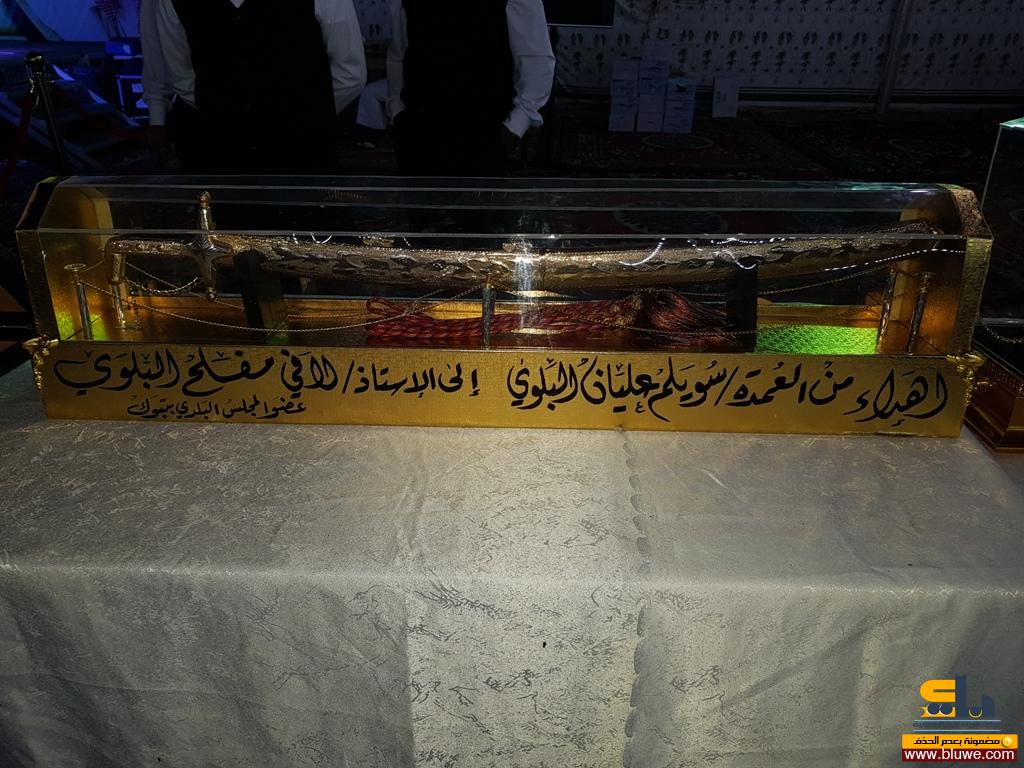 اهداء من العمدة / سويلم عليان البلوي إلى الاستاذ / لافي مفلح البلوي
عضو المجلس البلدي بتبوك
مضمونة بعدم الحذف
www.bluwe.com